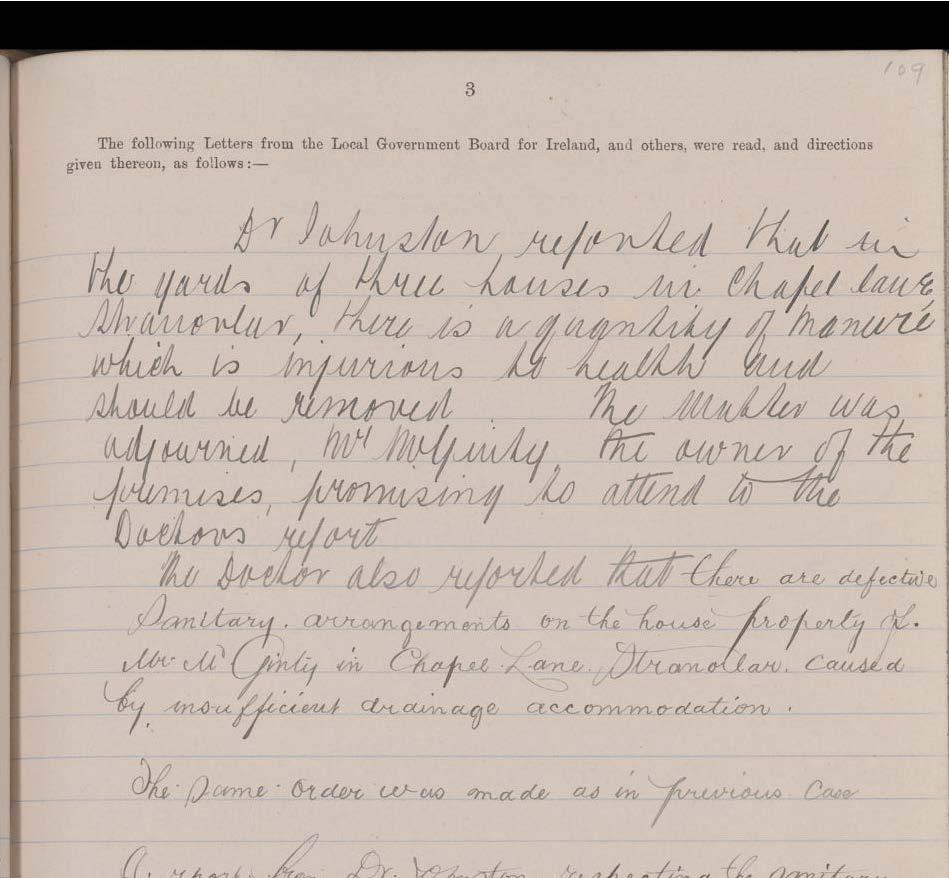 109
3
The following Letters from the Local Government Board for Ireland, and others, were read, and directions
given thereon, as follows :—
Dr Johnston reported that in
the yards of three houses in Chapel lane
Stranorlar, there is a quantity of manure
which is injurious to health and
should be removed. The matter was
adjourned, Mr McGinty, the owner of the
premises, promising to attend to the
Doctors report
The Doctor also reported that there are defective
Sanitary. arrangements on the house property of.
Mr. Mc Ginty in Chapel Lane. Stranorlar. caused
by insufficient drainage accommodation.
The same order was made as in previous case
A report from Dr. Johnston respecting the sanitary